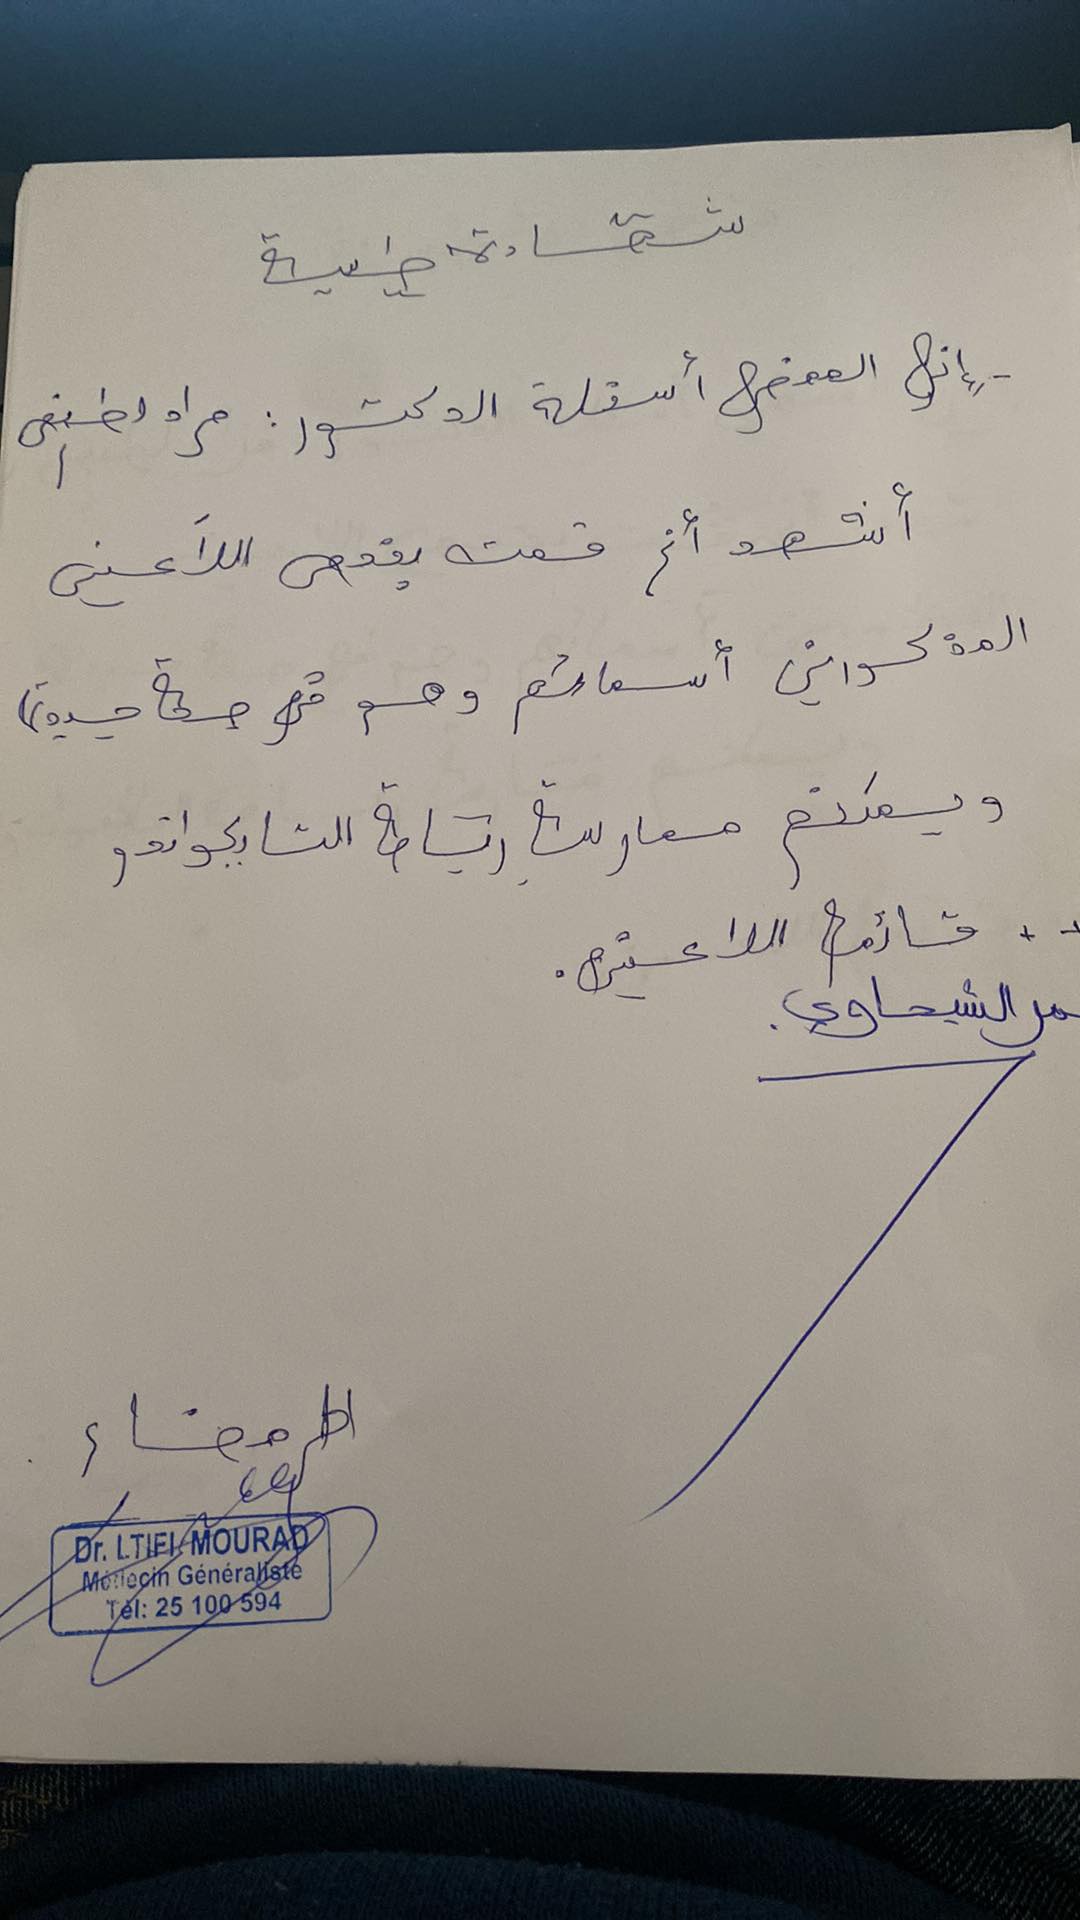 شهادة طبية
- إني الممضي أسفله الدكتور: مراد لطيفي
أشهد أني قمت بفحص اللاعبين
المذكورين أسمائهم وهم في صحة جيدة
ويمكنهم ممارسة رياضة التايكواندو
+ + قائمة اللاعبين.
الشيحاوي.
الإمضاء
Dr. LTIFI MOURAD
Médecin Généraliste
Tél: 25 100 594